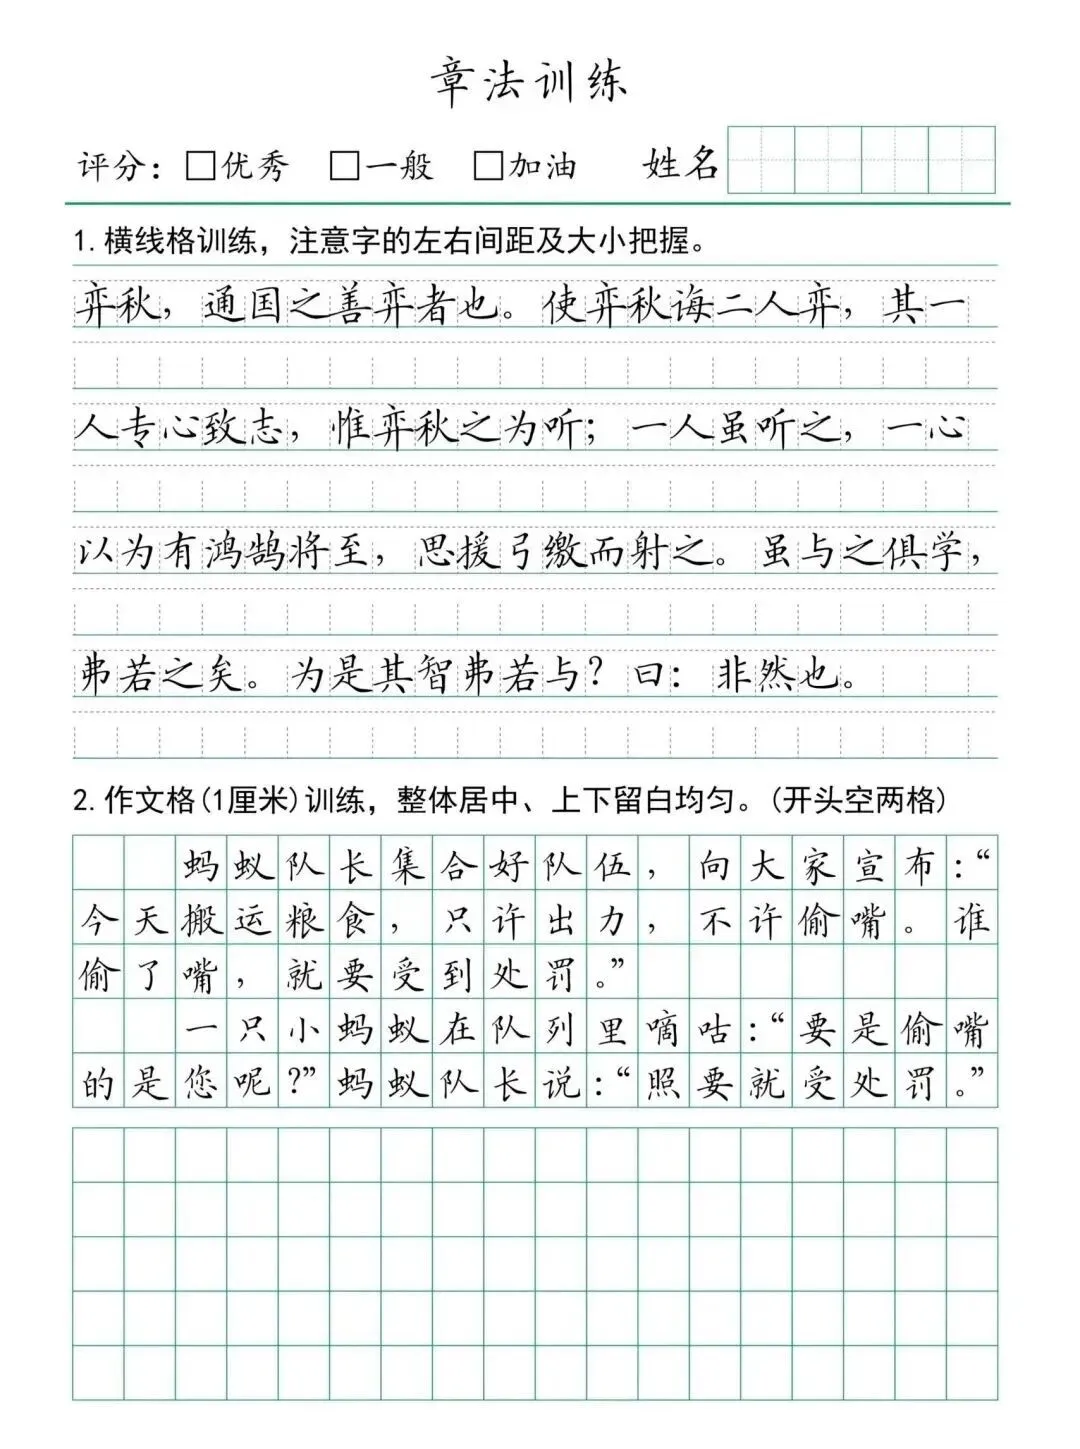 章法训练
评分：□优秀 □一般 □加油 姓名
1.横线格训练，注意字的左右间距及大小把握。
弈秋，通国之善弈者也。使弈秋诲二人弈，其一
人专心致志，惟弈秋之为听；一人虽听之，一心
以为有鸿鹄将至，思援弓缴而射之。虽与之俱学，
弗若之矣。为是其智弗若与？曰：非然也。
2.作文格(1厘米)训练，整体居中、上下留白均匀。(开头空两格)
蚂蚁队长集合好队伍，向大家宣布：“
今天搬运粮食，只许出力，不许偷嘴。谁
偷了嘴，就要受到处罚。”
一只小蚂蚁在队列里嘀咕：“要是偷嘴
的是您呢？”蚂蚁队长说：“照要就受处罚。”